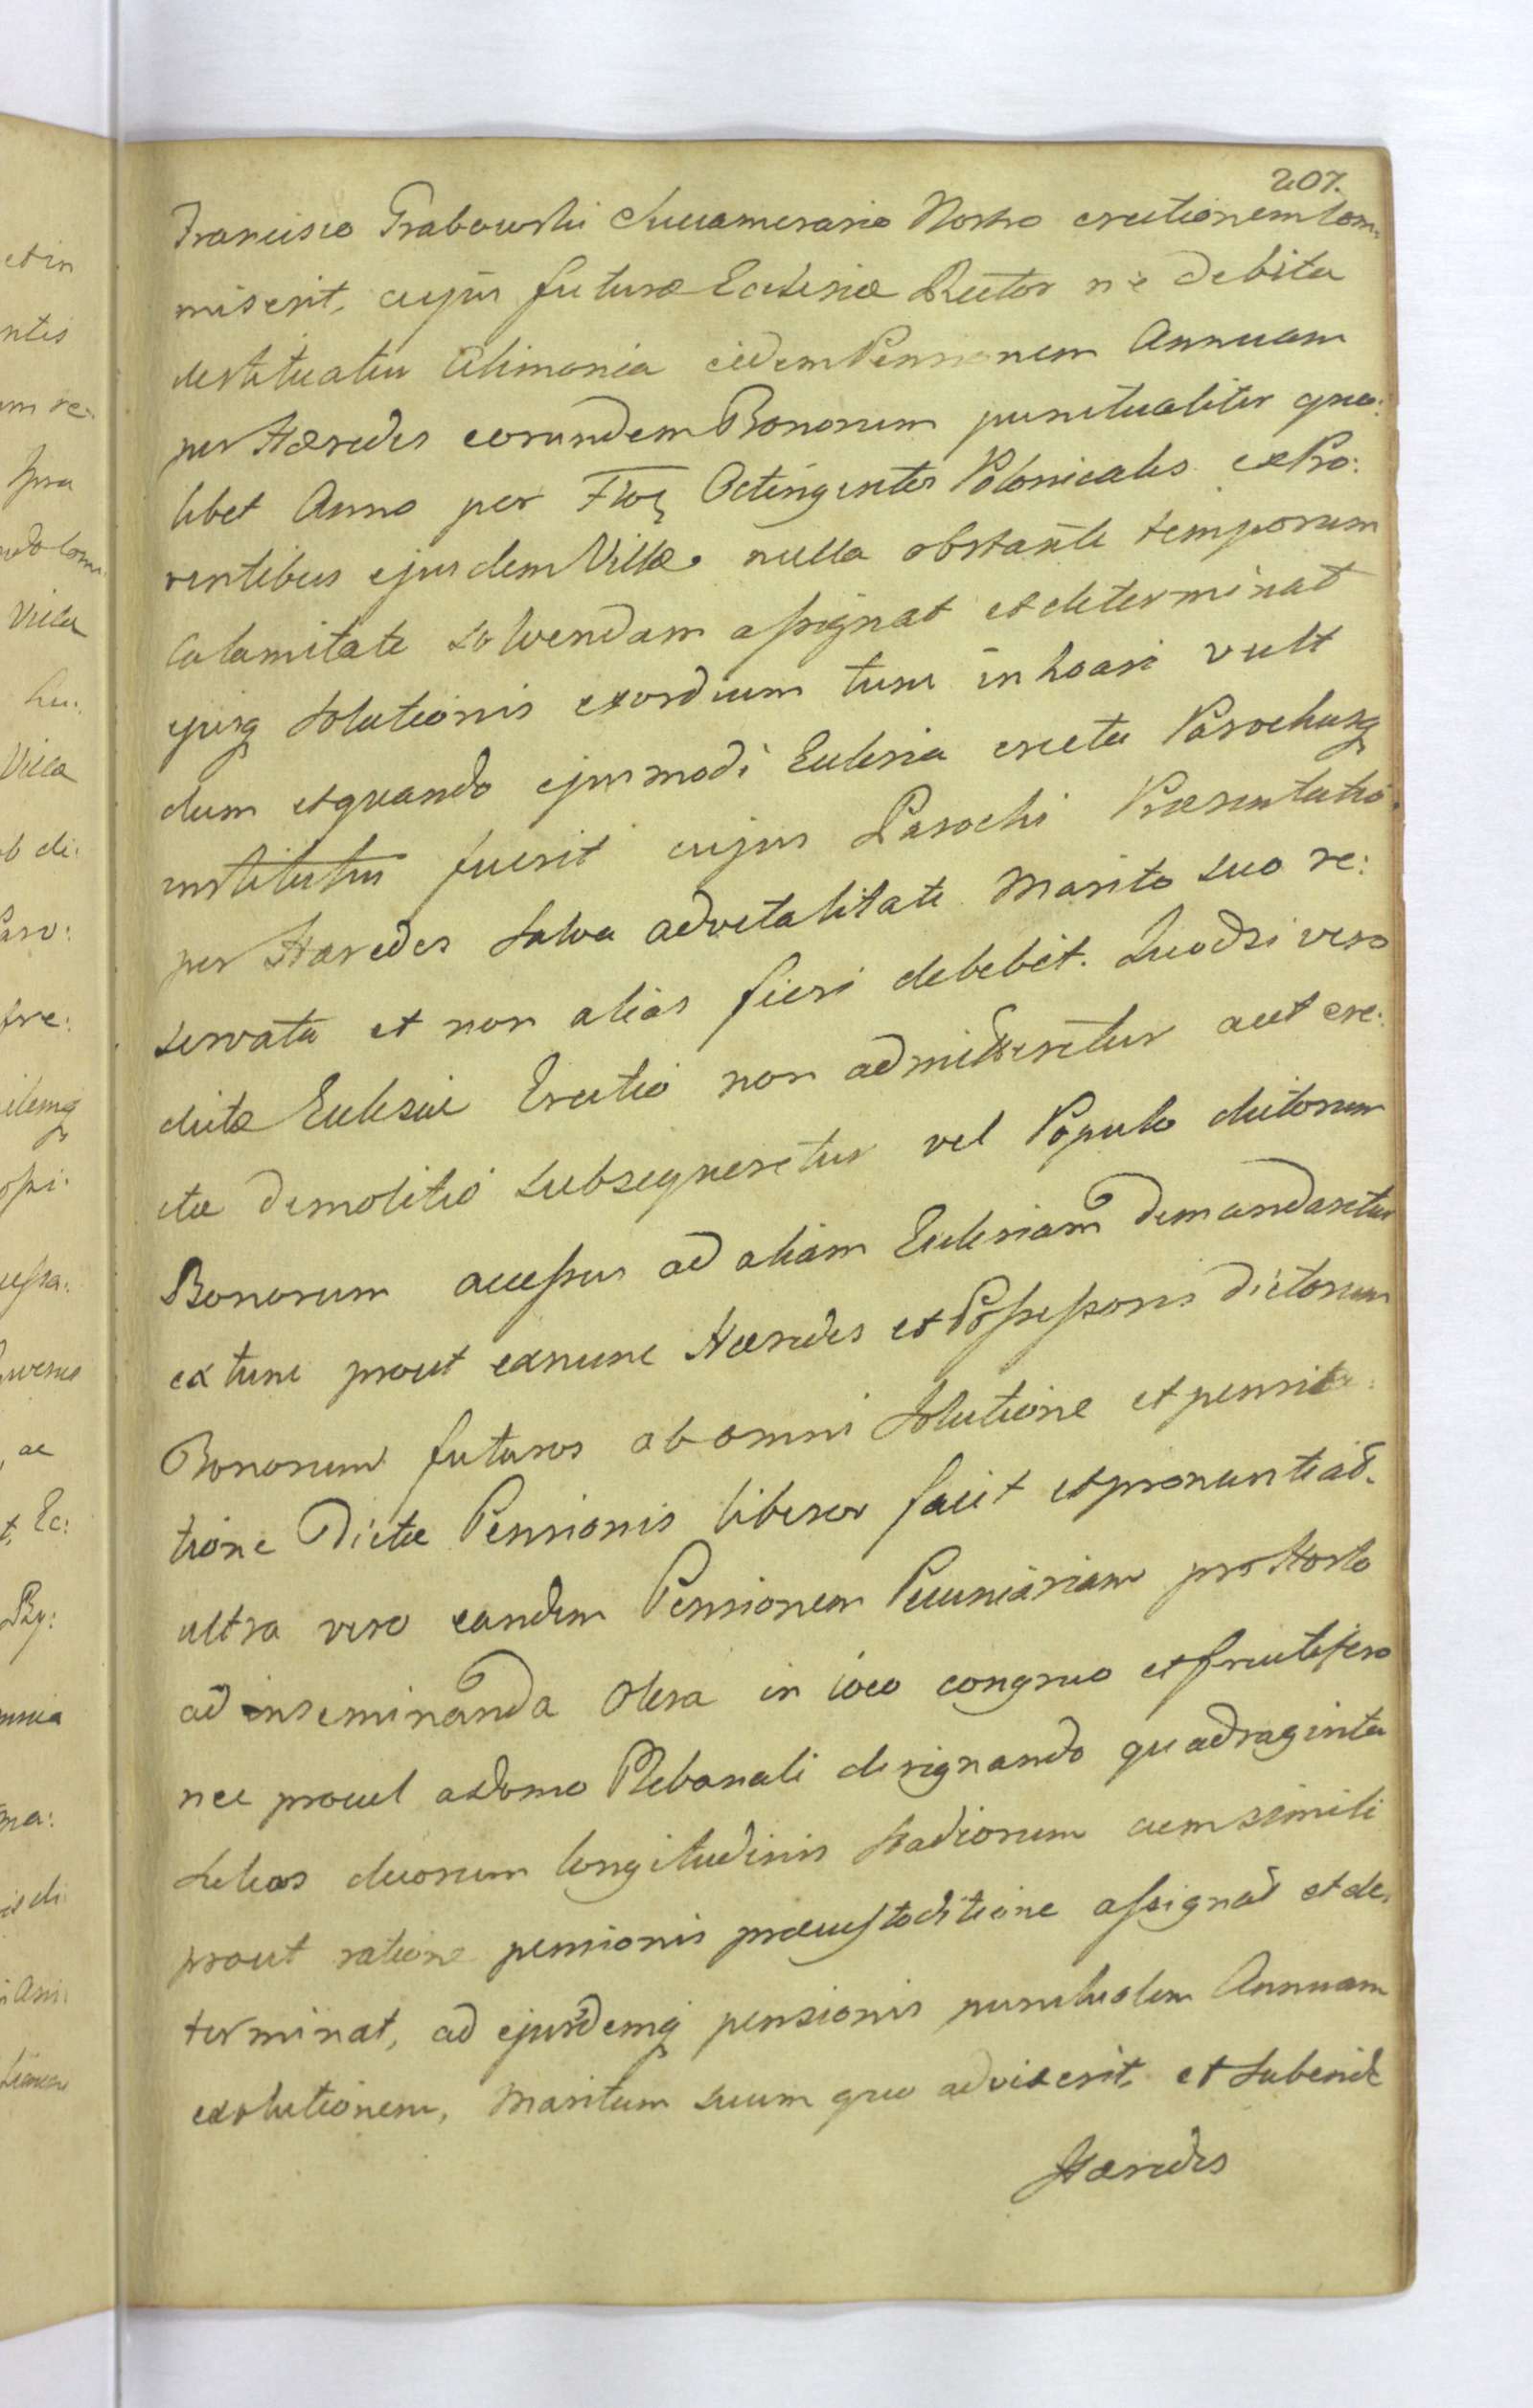 207.
Francisco Grabowski Succamerario Nostro erectionem com:
miserit, cujus futuræ Ecclesiæ Rector ne debita
destituatur alimonia eidem Pensionem Annuam
per Hæredes eorundem Bonorum punctualiter quo:
libet Anno per Flor Octingentos Polonicales ex Pro:
ventibus ejusdem Villæ nulla obstante temporum
calamitate solvendam assignat et determinat
ejusq solutionis exordium tunc inhoari vult
dum et quando ejusmodi Ecclesia erecta Parochusq
institutus fuerit cujus Parochi Præsentatio
per Hæredes salva advitalitate Marito suo re:
servata et non alias fieri debebit. Quodsi vero
dictæ Ecclesiæ Erectio non admitteretur aut ere:
ctæ demolitio subsequeretur vel Populo dictorum
Bonorum accessus ad aliam Ecclesiam demandaretur
ex tunc prout exnunc Hæredes et Possessores dictorum
Bonorum futuros ab omni solutione et pensita:
tione Dictæ Pensionis liberos facit et pronuntiat.
ultra vero eandem Pensionem Pecuniariam pro Horto
ad inseminanda Olera in loco congruo et fructifero
nec procul a domo Plebanali designando quadraginta
Sulcos duorum longitudinis stadiorum cum simili
prout ratione pensionis præcustoditione assignat et de:
terminat, ad ejusdemq pensionis punctualem Annuam
exolutionem, Maritum suum quo advixerit, et subinde
Hæredes
et in
ntis
um re:
pra
Villa
hu:
Villa
ob di:
Paro:
fre:
idemq
opi:
ussa:
ac
t, Ec:
By:
ma:
is di